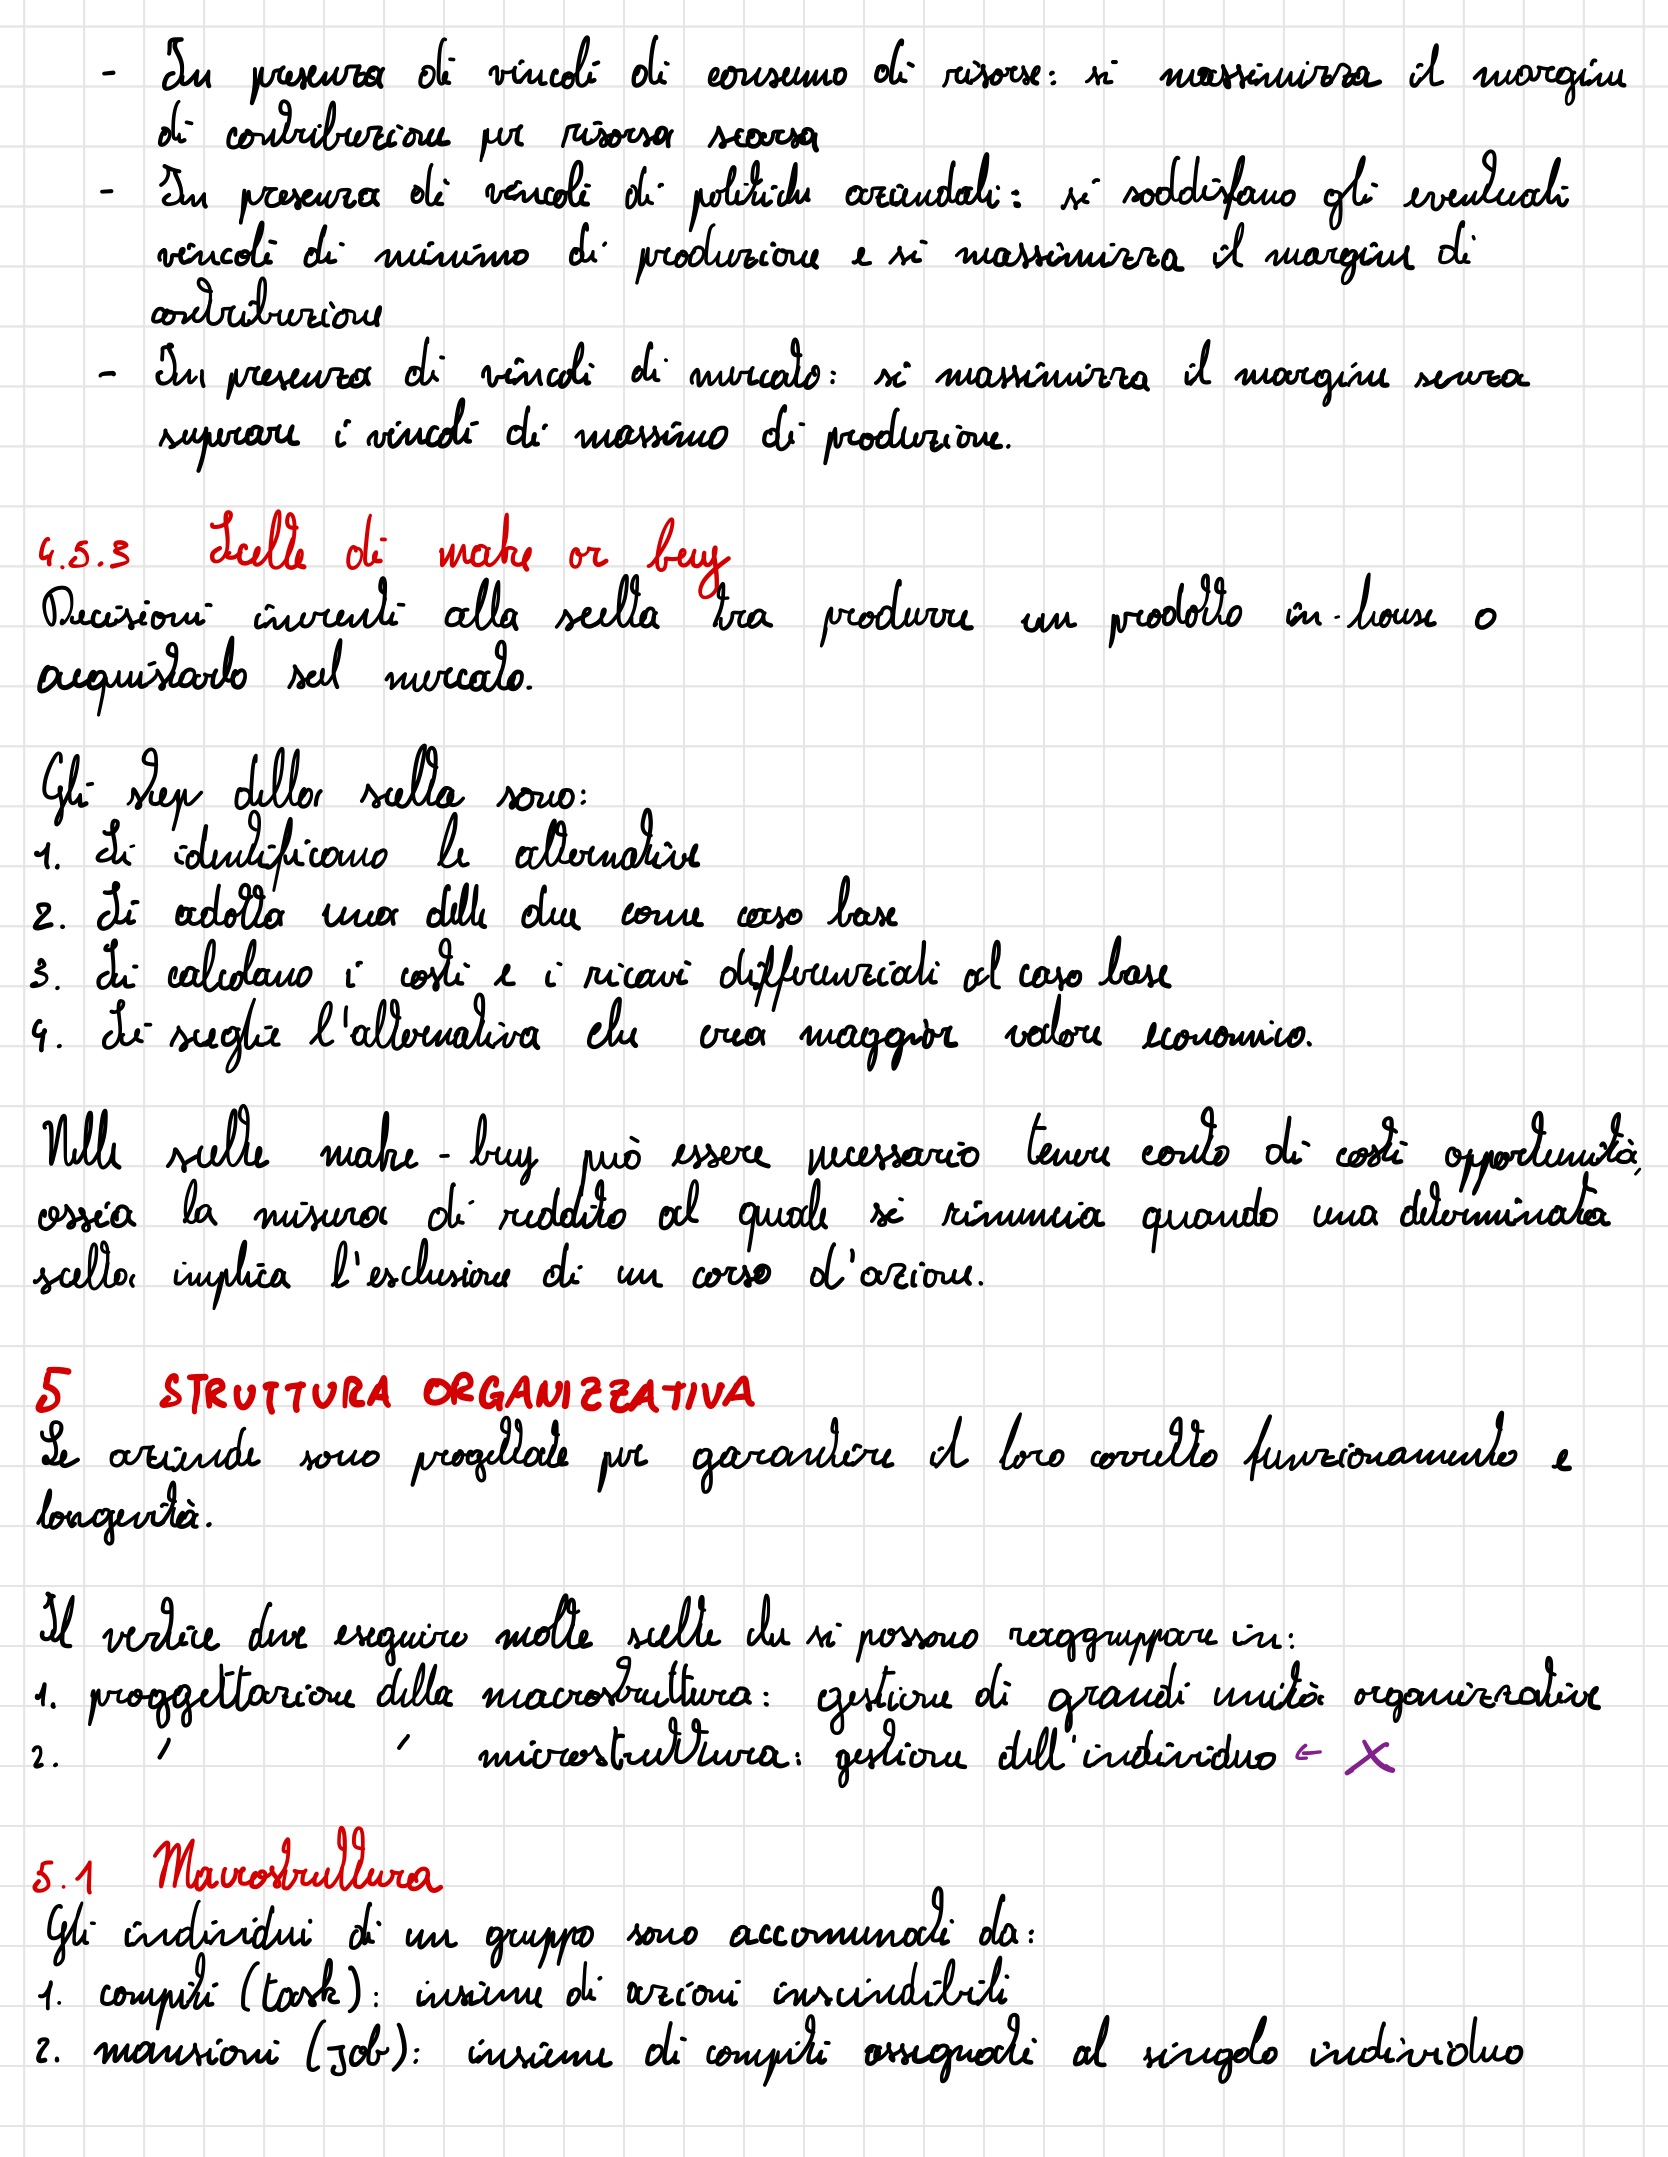 - In presenza di vincoli di consumo di risorse: si massimizza il margine
di contribuzione per risorsa scarsa
- In presenza di vincoli di politiche aziendali: si soddisfano gli eventuali
vincoli di minimo di produzione e si massimizza il margine di
contribuzione
- In presenza di vincoli di mercato: si massimizza il margine senza
superare i vincoli di massimo di produzione.
4.5.3 Scelte di make or buy
Decisioni inerenti alla scelta tra produrre un prodotto in-house o
acquistarlo sul mercato.
Gli step della scelta sono:
1. Si identificano le alternative
2. Si adotta una delle due come caso base
3. Si calcolano i costi e i ricavi differenziali al caso base
4. Si sceglie l'alternativa che crea maggior valore economico.
Nelle scelte make-buy può essere necessario tenere conto di costi opportunità,
ossia la misura di reddito al quale si rinuncia quando una determinata
scelta implica l'esclusione di un corso d'azione.
5 STRUTTURA ORGANIZZATIVA
Le aziende sono progettate per garantire il loro corretto funzionamento e
longevità.
Il vertice deve eseguire molte scelte che si possono raggruppare in:
1. proggettazione della macrostruttura: gestione di grandi unità organizzative
2. ′ ′ microstruttura: gestione dell'individuo ← X
5.1 Macrostruttura
Gli individui di un gruppo sono accomunati da:
1. compiti (task): insieme di azioni inscindibili
2. mansioni (job): insieme di compiti assegnati al singolo individuo